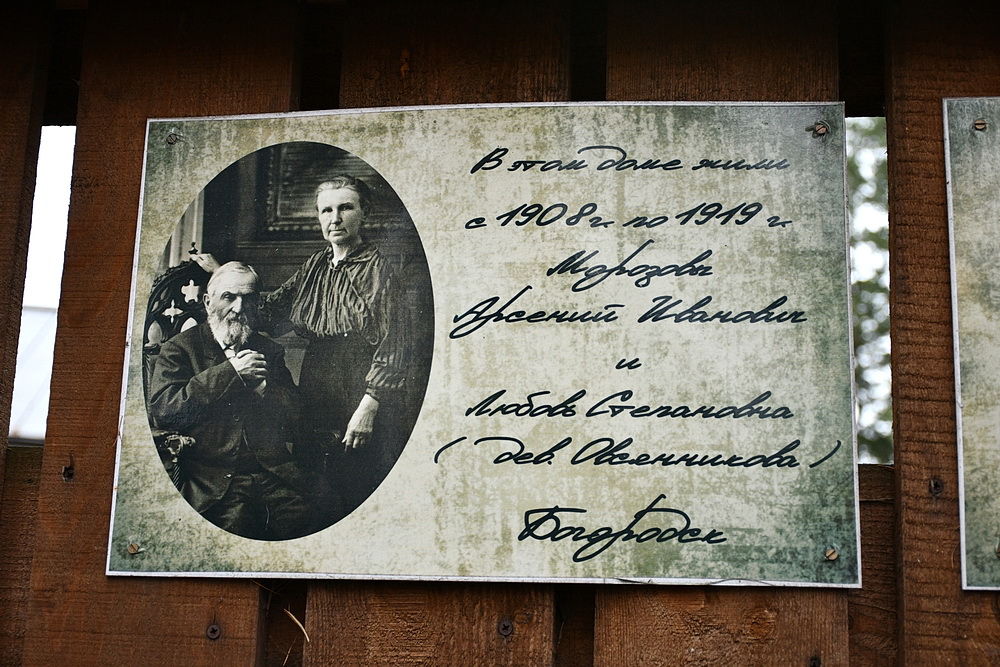 В этом доме жили
с 1908 г. по 1919 г.
Морозовы
Арсений Иванович
и
Любовь Степановна
(дев. Овсянникова)
Богородск